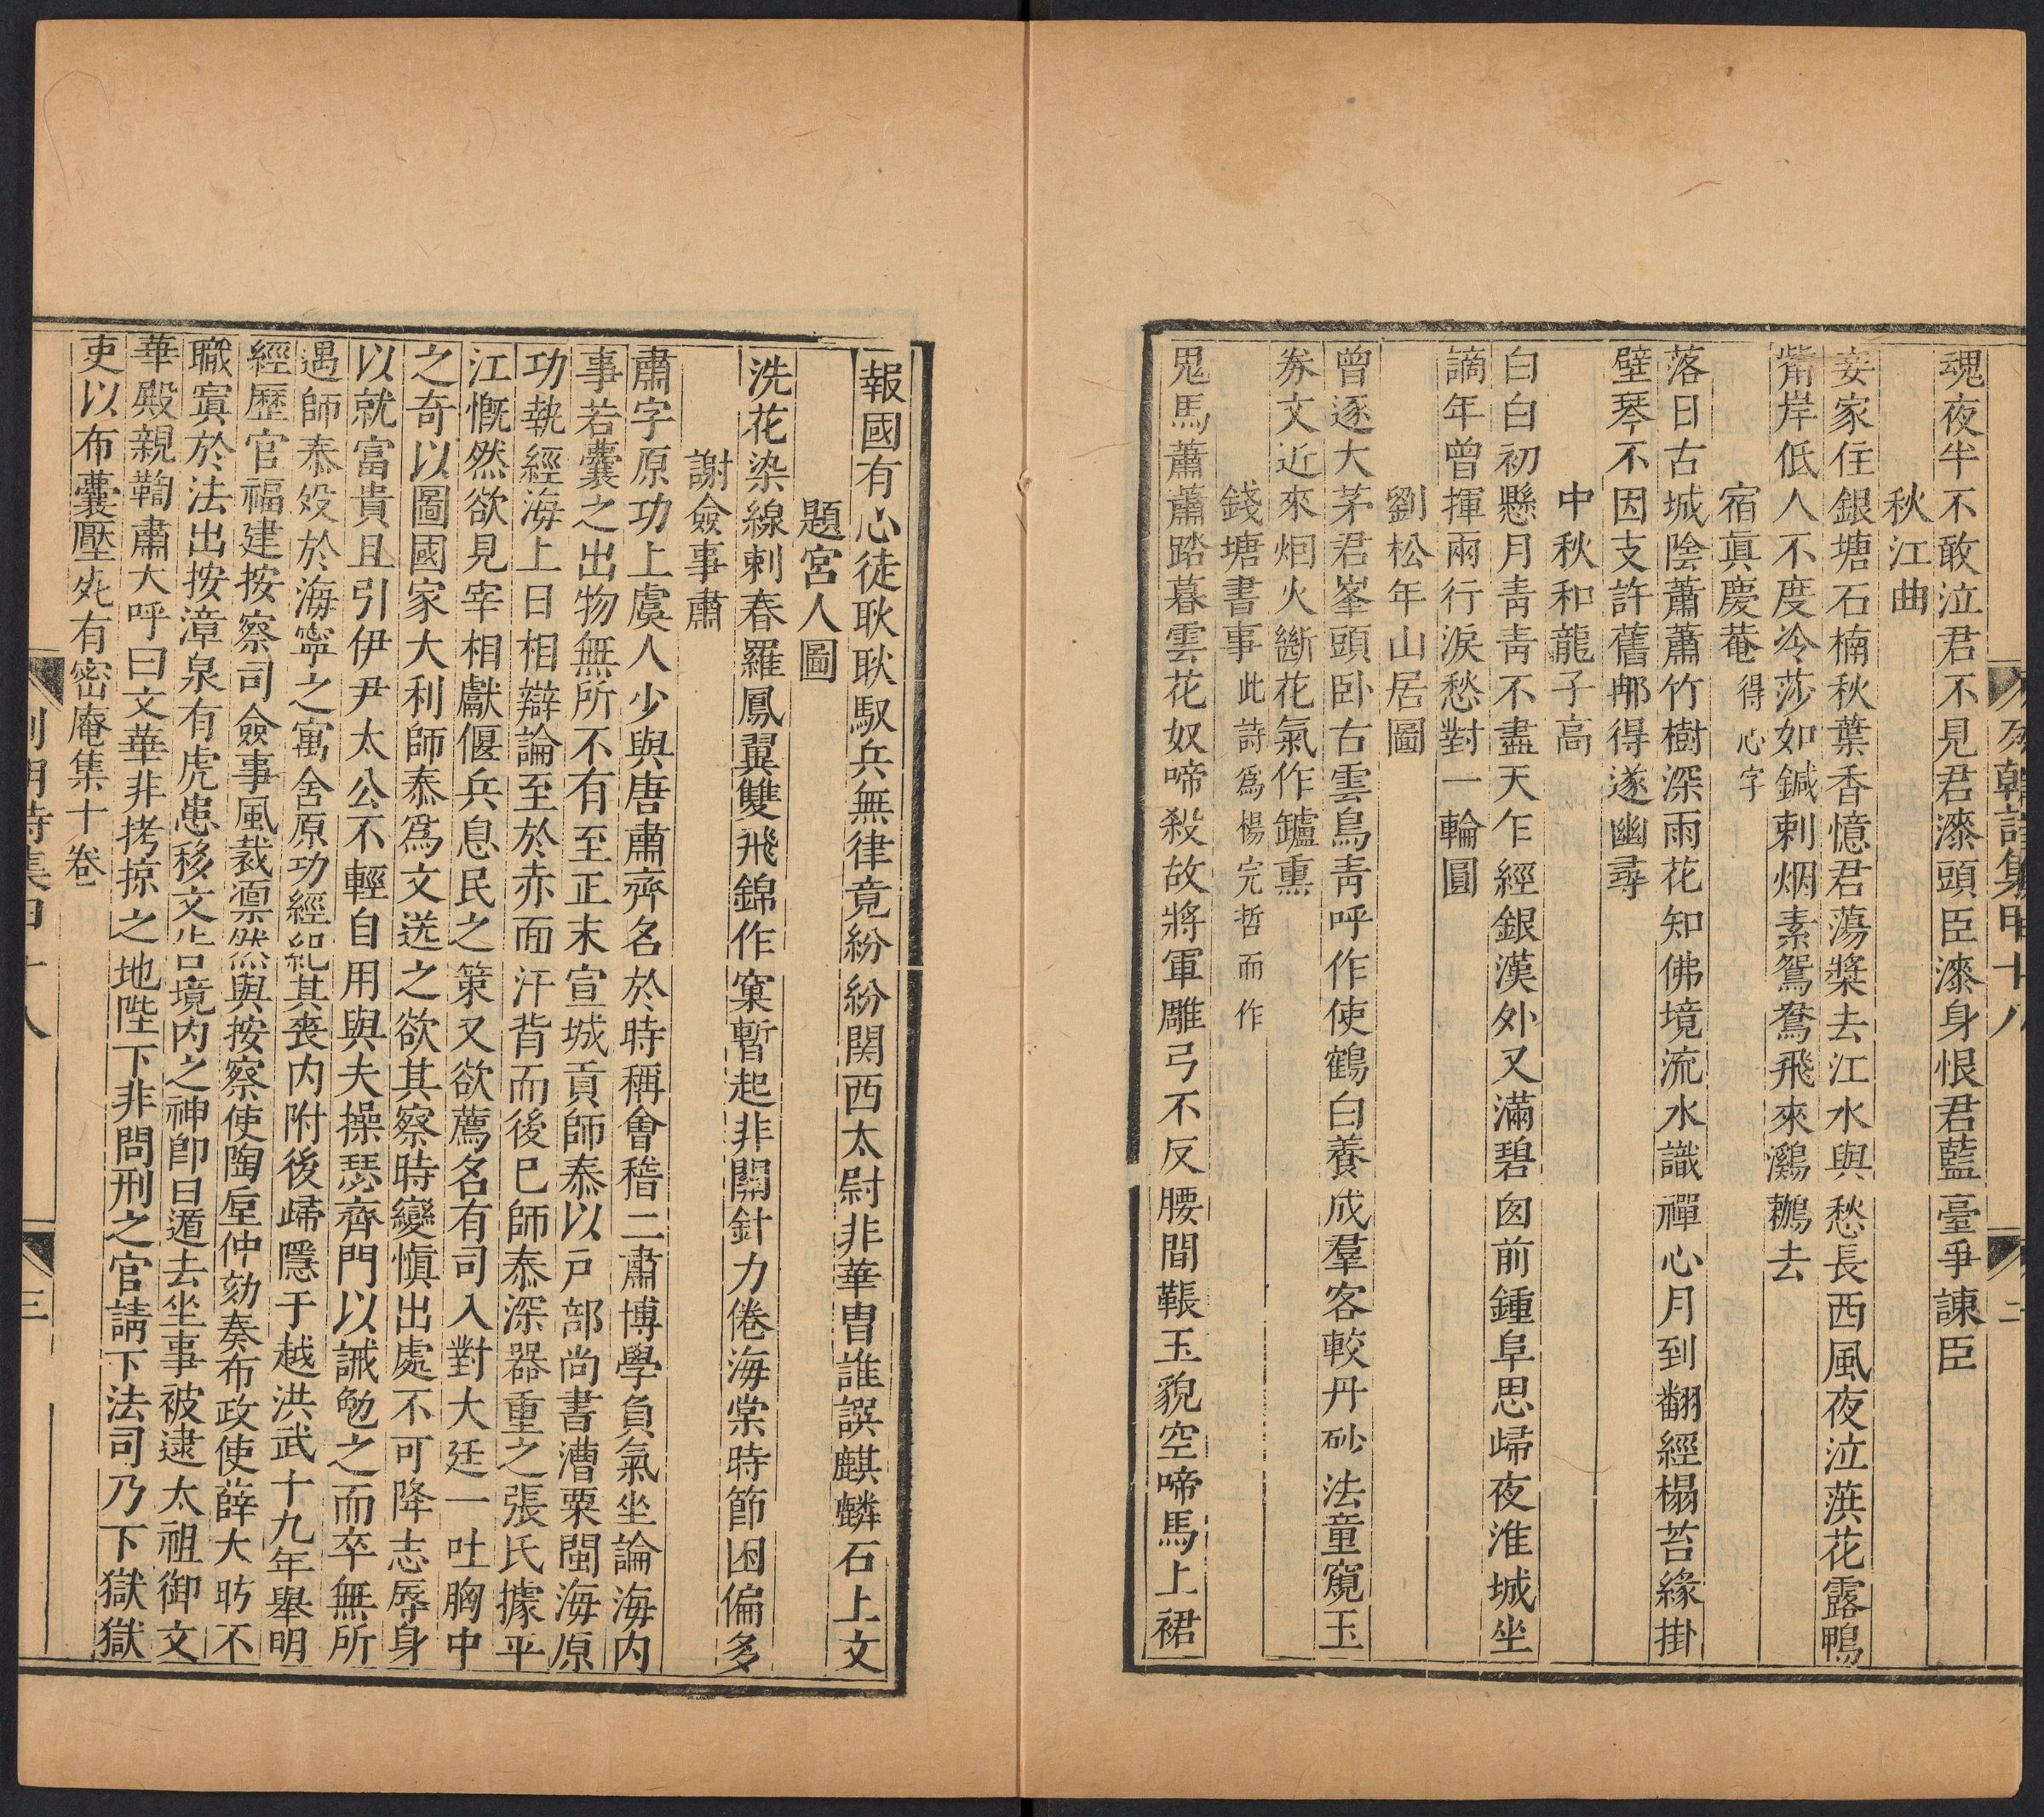 魂夜半不敢泣君不見君漆頭臣漆身恨君藍臺爭諫臣
秋江曲
妾家住銀塘石楠秋葉香憶君蕩槳去江水與愁長西風夜泣葓花露鴨
觜岸低人不度冷莎如鍼刺烟素鴛鴦飛來鸂鶒去
宿眞慶菴 得心字
落日古城陰蕭蕭竹樹深雨花知佛境流水識禪心月到翻經榻苔緣掛
壁琴不因支許舊那得遂幽尋
中秋和龍子高
白白初懸月靑靑不盡天乍經銀漢外又滿碧囱前鍾阜思歸夜淮城坐
謫年曾揮兩行淚愁對一輪圓
劉松年山居圖
曾逐大茅君峯頭卧右雲鳥靑呼作使鶴白養成羣客較丹砂法童窺玉
券文近來烟火斷花氣作鑪熏
錢塘書事 此詩爲楊完哲而作
鬼馬蕭蕭踏暮雲花奴啼殺故將軍雕弓不反腰間韔玉貌空啼馬上裙
列朝詩集甲十八
二
報國有心徒耿耿馭兵無律竟紛紛関西太尉非華胄誰誤麒麟石上文
題宮人圖
洗花染線刺春羅鳳翼雙飛錦作窠暫起非關針力倦海棠時節困偏多
謝僉事肅
肅字原功上虞人少與唐肅齊名於時稱會稽二肅博學負氣坐論海内
事若囊之出物無所不有至正末宣城貢師泰以戸部尚書漕粟閩海原
功執經海上日相辯論至於赤面汗背而後巳師泰深器重之張氏據平
江慨然欲見宰相獻偃兵息民之策又欲薦名有司入對大廷一吐胸中
之奇以圖國家大利師泰爲文送之欲其察時變愼出處不可降志辱身
以就富貴且引伊尹太公不輕自用與夫操瑟齊門以誡勉之而卒無所
遇師泰歿於海寧之寓舍原功經紀其喪内附後歸隱于越洪武十九年舉明
經歷官福建按察司僉事風裁凛然與按察使陶垕仲劾奏布政使薛大昉不
職寘於法出按漳泉有虎患移文告境内之神卽日遁去坐事被逮太祖御文
華殿親鞫肅大呼曰文華非拷掠之地陛下非問刑之官請下法司乃下獄獄
吏以布囊壓死有密庵集十卷
列朝詩集甲十八
三